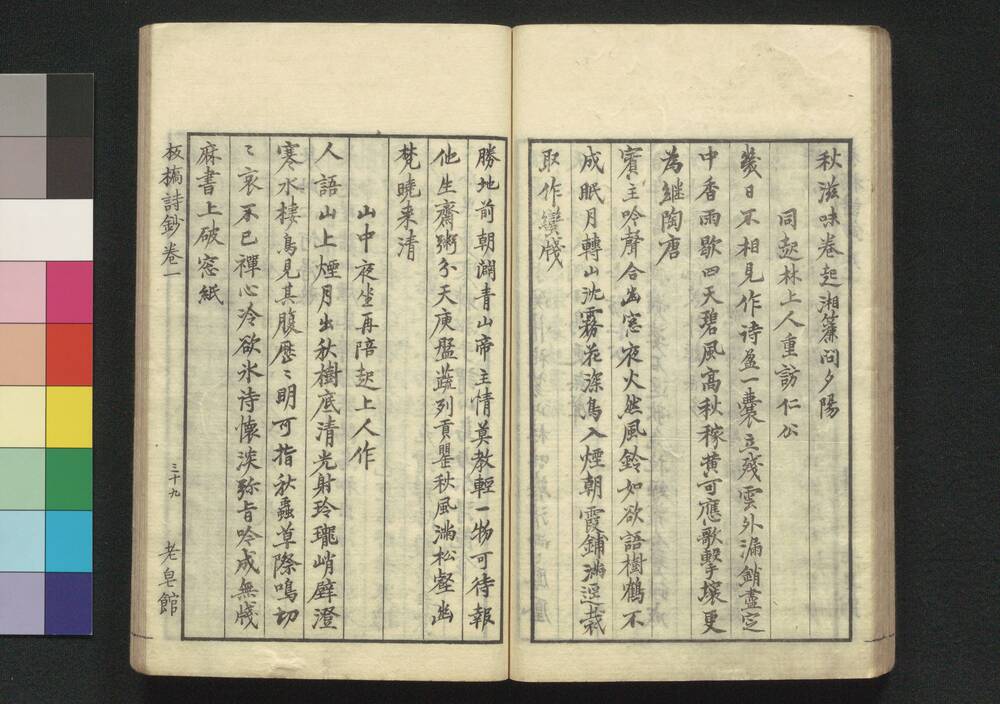 秋滋味卷起湘簾问夕陽
同起林上人重訪仁公
幾日不相見作诗盈一囊立殘雲外漏銷盡定
中香雨歇四天碧風高秋稼黄可應歌擊壤更
為継陶唐
賓主吟聲合幽窓夜火然風鈴如欲語樹鶴不
成眠月轉山沈霧花深鳥入煙朝霞鋪滿逕裁
取作蠻牋
勝地前朝闢青山帝主情莫教輕一物可待報
他生齋粥分天庾盤蔬列貢罌秋風滿松壑幽
梵曉来清
山中夜坐再陪起上人作
人語山上煙月出秋樹底清光射玲瓏峭壁澄
寒水棲鳥見其腹歷〻明可指秋蟲草際鳴切
〻哀不已禪心冷欲氷诗懐淡弥旨吟成無牋
麻書上破窓紙
板橋詩鈔卷一
三十九
老皂館